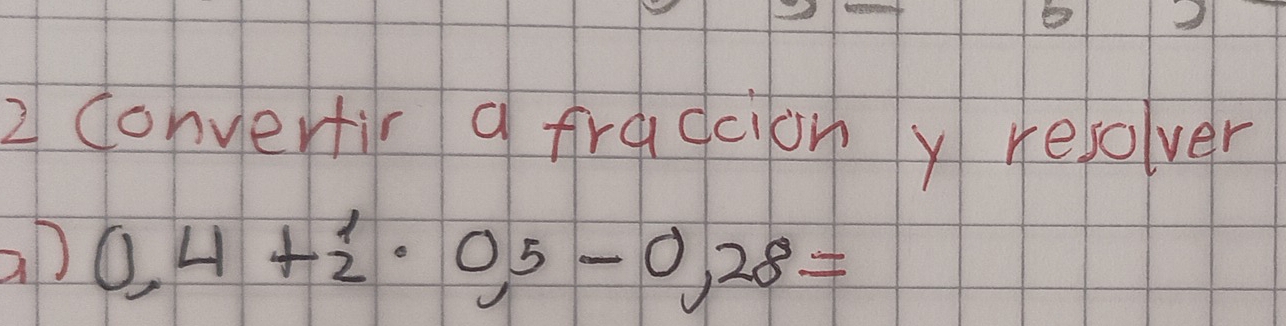 2 Convertir a fraccion y resolver
a) 0,4 + 1/2 · 0,5 - 0,28 =